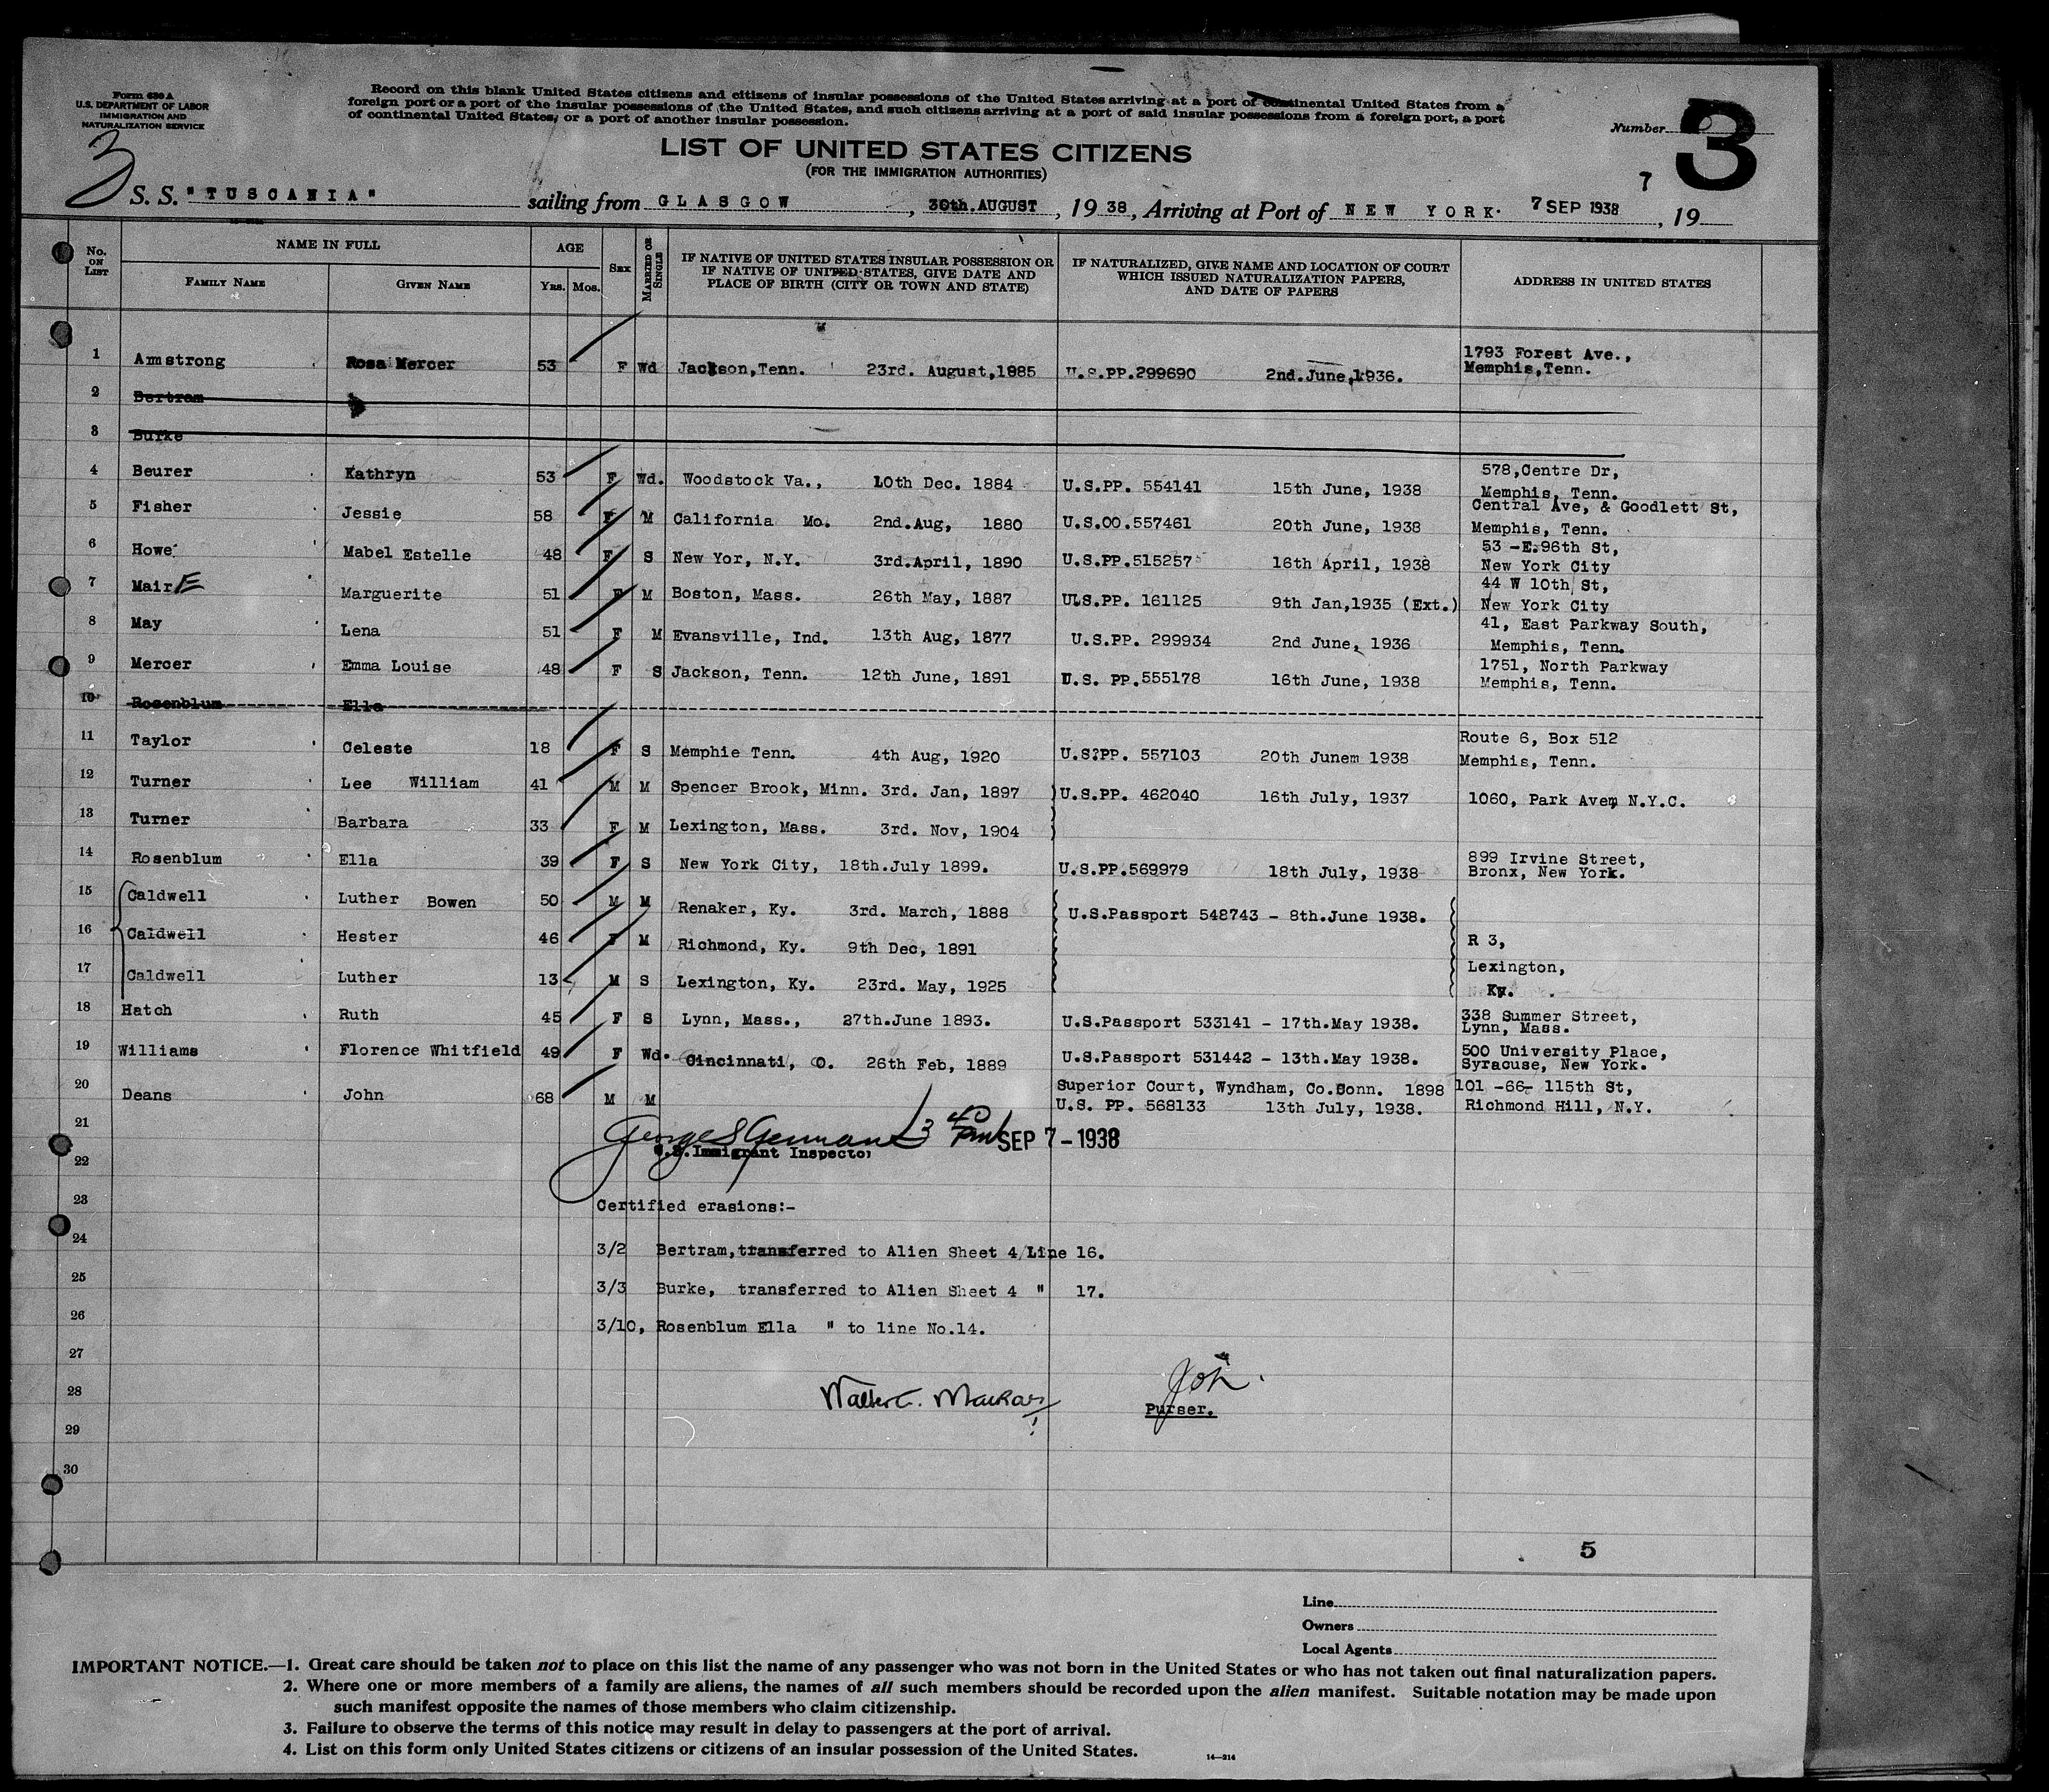 Form 630 A
U.S. DEPARTMENT OF LABOR
IMMIGRATION AND
NATURALIZATION SERVICE
Record on this blank United States citizens and citizens of insular possessions of the United States arriving at a port of continental United States from a
foreign port or a port of the insular possessions of the United States, and such citizens arriving at a port of said insular possessions from a foreign port, a port
of continental United States, or a port of another insular possession.
Number 3
LIST OF UNITED STATES CITIZENS
(FOR THE IMMIGRATION AUTHORITIES)
3
7
S. S. "TUSCANIA" sailing from GLASGOW, 30th.AUGUST, 19 38, Arriving at Port of NEW YORK. 7 SEP 1938, 19
No. ON LIST
NAME IN FULL
FAMILY NAME GIVEN NAME
AGE
YRS. MOS.
SEX
MARRIED OR SINGLE
IF NATIVE OF UNITED STATES INSULAR POSSESSION OR
IF NATIVE OF UNITED STATES, GIVE DATE AND
PLACE OF BIRTH (CITY OR TOWN AND STATE)
IF NATURALIZED, GIVE NAME AND LOCATION OF COURT
WHICH ISSUED NATURALIZATION PAPERS,
AND DATE OF PAPERS
ADDRESS IN UNITED STATES
1 Armstrong Rosa Mercer 53 F Wd Jackson,Tenn. 23rd. August,1885 U.S.PP.299690 2nd.June,1936. 1793 Forest Ave.,
Memphis,Tenn.
2 Bertram
3 Burke
4 Beurer Kathryn 53 F Wd. Woodstock Va., 10th Dec. 1884 U.S.PP. 554141 15th June, 1938 578,Centre Dr,
Memphis, Tenn.
5 Fisher Jessie 58 F M California Mo. 2nd.Aug, 1880 U.S.OO.557461 20th June, 1938 Central Ave, & Goodlett St,
Memphis, Tenn.
6 Howe Mabel Estelle 48 F S New Yor, N.Y. 3rd.April, 1890 U.S.PP.515257 16th April, 1938 53 -E.96th St,
New York City
7 MairE Marguerite 51 F M Boston, Mass. 26th May, 1887 U.S.PP. 161125 9th Jan,1935 (Ext.) 44 W 10th St,
New York City
8 May Lena 51 F M Evansville, Ind. 13th Aug, 1877 U.S.PP. 299934 2nd June, 1936 41, East Parkway South,
Memphis, Tenn.
9 Mercer Emma Louise 48 F S Jackson, Tenn. 12th June, 1891 U.S. PP.555178 16th June, 1938 1751, North Parkway
Memphis, Tenn.
10 Rosenblum Ella
11 Taylor Celeste 18 F S Memphie Tenn. 4th Aug, 1920 U.S?PP. 557103 20th Junem 1938 Route 6, Box 512
Memphis, Tenn.
12 Turner Lee William 41 M M Spencer Brook, Minn. 3rd. Jan, 1897 U.S.PP. 462040 16th July, 1937 1060, Park Ave, N.Y.C.
13 Turner Barbara 33 F M Lexington, Mass. 3rd. Nov, 1904
14 Rosenblum Ella 39 F S New York City, 18th.July 1899. U.S.PP.569979 18th July, 1938 899 Irvine Street,
Bronx, New York.
15 Caldwell Luther Bowen 50 M M Renaker, Ky. 3rd. March, 1888 U.S.Passport 548743 - 8th.June 1938.
16 Caldwell Hester 46 F M Richmond, Ky. 9th Dec, 1891 R 3,
Lexington,
17 Caldwell Luther 13 M S Lexington, Ky. 23rd. May, 1925 Ky.
18 Hatch Ruth 45 F S Lynn, Mass., 27th.June 1893. U.S.Passport 533141 - 17th.May 1938. 338 Summer Street,
Lynn, Mass.
19 Williams Florence Whitfield 49 F Wd. Cincinnati, O. 26th Feb, 1889 U.S.Passport 531442 - 13th.May 1938. 500 University Place,
Syracuse, New York.
20 Deans John 68 M M Superior Court, Wyndham, Co.Conn. 1898 101 -66- 115th St,
U.S. PP. 568133 13th July, 1938. Richmond Hill, N.Y.
21 SEP 7 - 1938
22 Immigrant Inspector
23 Certified erasions:-
24 3/2 Bertram,transferred to Alien Sheet 4/Line 16.
25 3/3 Burke, transferred to Alien Sheet 4 " 17.
26 3/10, Rosenblum Ella " to line No.14.
27
28
Purser.
29
30
5
Line
Owners
Local Agents
IMPORTANT NOTICE.—1. Great care should be taken not to place on this list the name of any passenger who was not born in the United States or who has not taken out final naturalization papers.
2. Where one or more members of a family are aliens, the names of all such members should be recorded upon the alien manifest. Suitable notation may be made upon
such manifest opposite the names of those members who claim citizenship.
3. Failure to observe the terms of this notice may result in delay to passengers at the port of arrival.
4. List on this form only United States citizens or citizens of an insular possession of the United States.
14—214